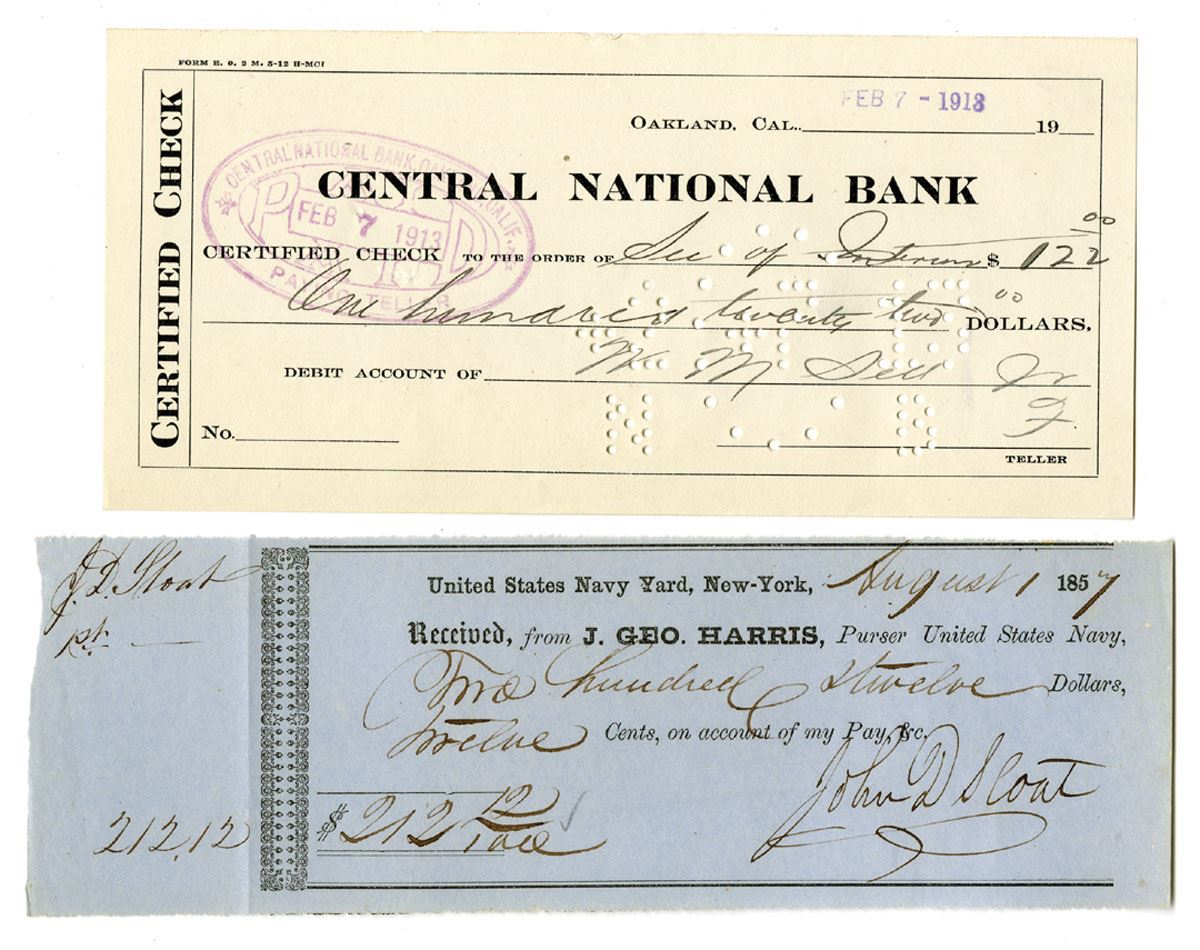 FORM E. 9. 2 M. 5-12 H-MCI
CERTIFIED CHECK
FEB 7 - 1913
OAKLAND, CAL., 19
CENTRAL NATIONAL BANK
CENTRAL NATIONAL BANK OAKLAND CALIF.
PAID
FEB 7 1913
PAYING TELLER
CERTIFIED CHECK TO THE ORDER OF Sec of Interior $ 122 00
One hundred twenty two 00 DOLLARS.
DEBIT ACCOUNT OF W M
No.
TELLER
J. D. Sloat
United States Navy Yard, New-York, August 1 1857
Received, from J. GEO. HARRIS, Purser United States Navy,
Two hundred & twelve Dollars,
twelve Cents, on account of my Pay, &c.
John D Sloat
212.12
$ 212 12/100